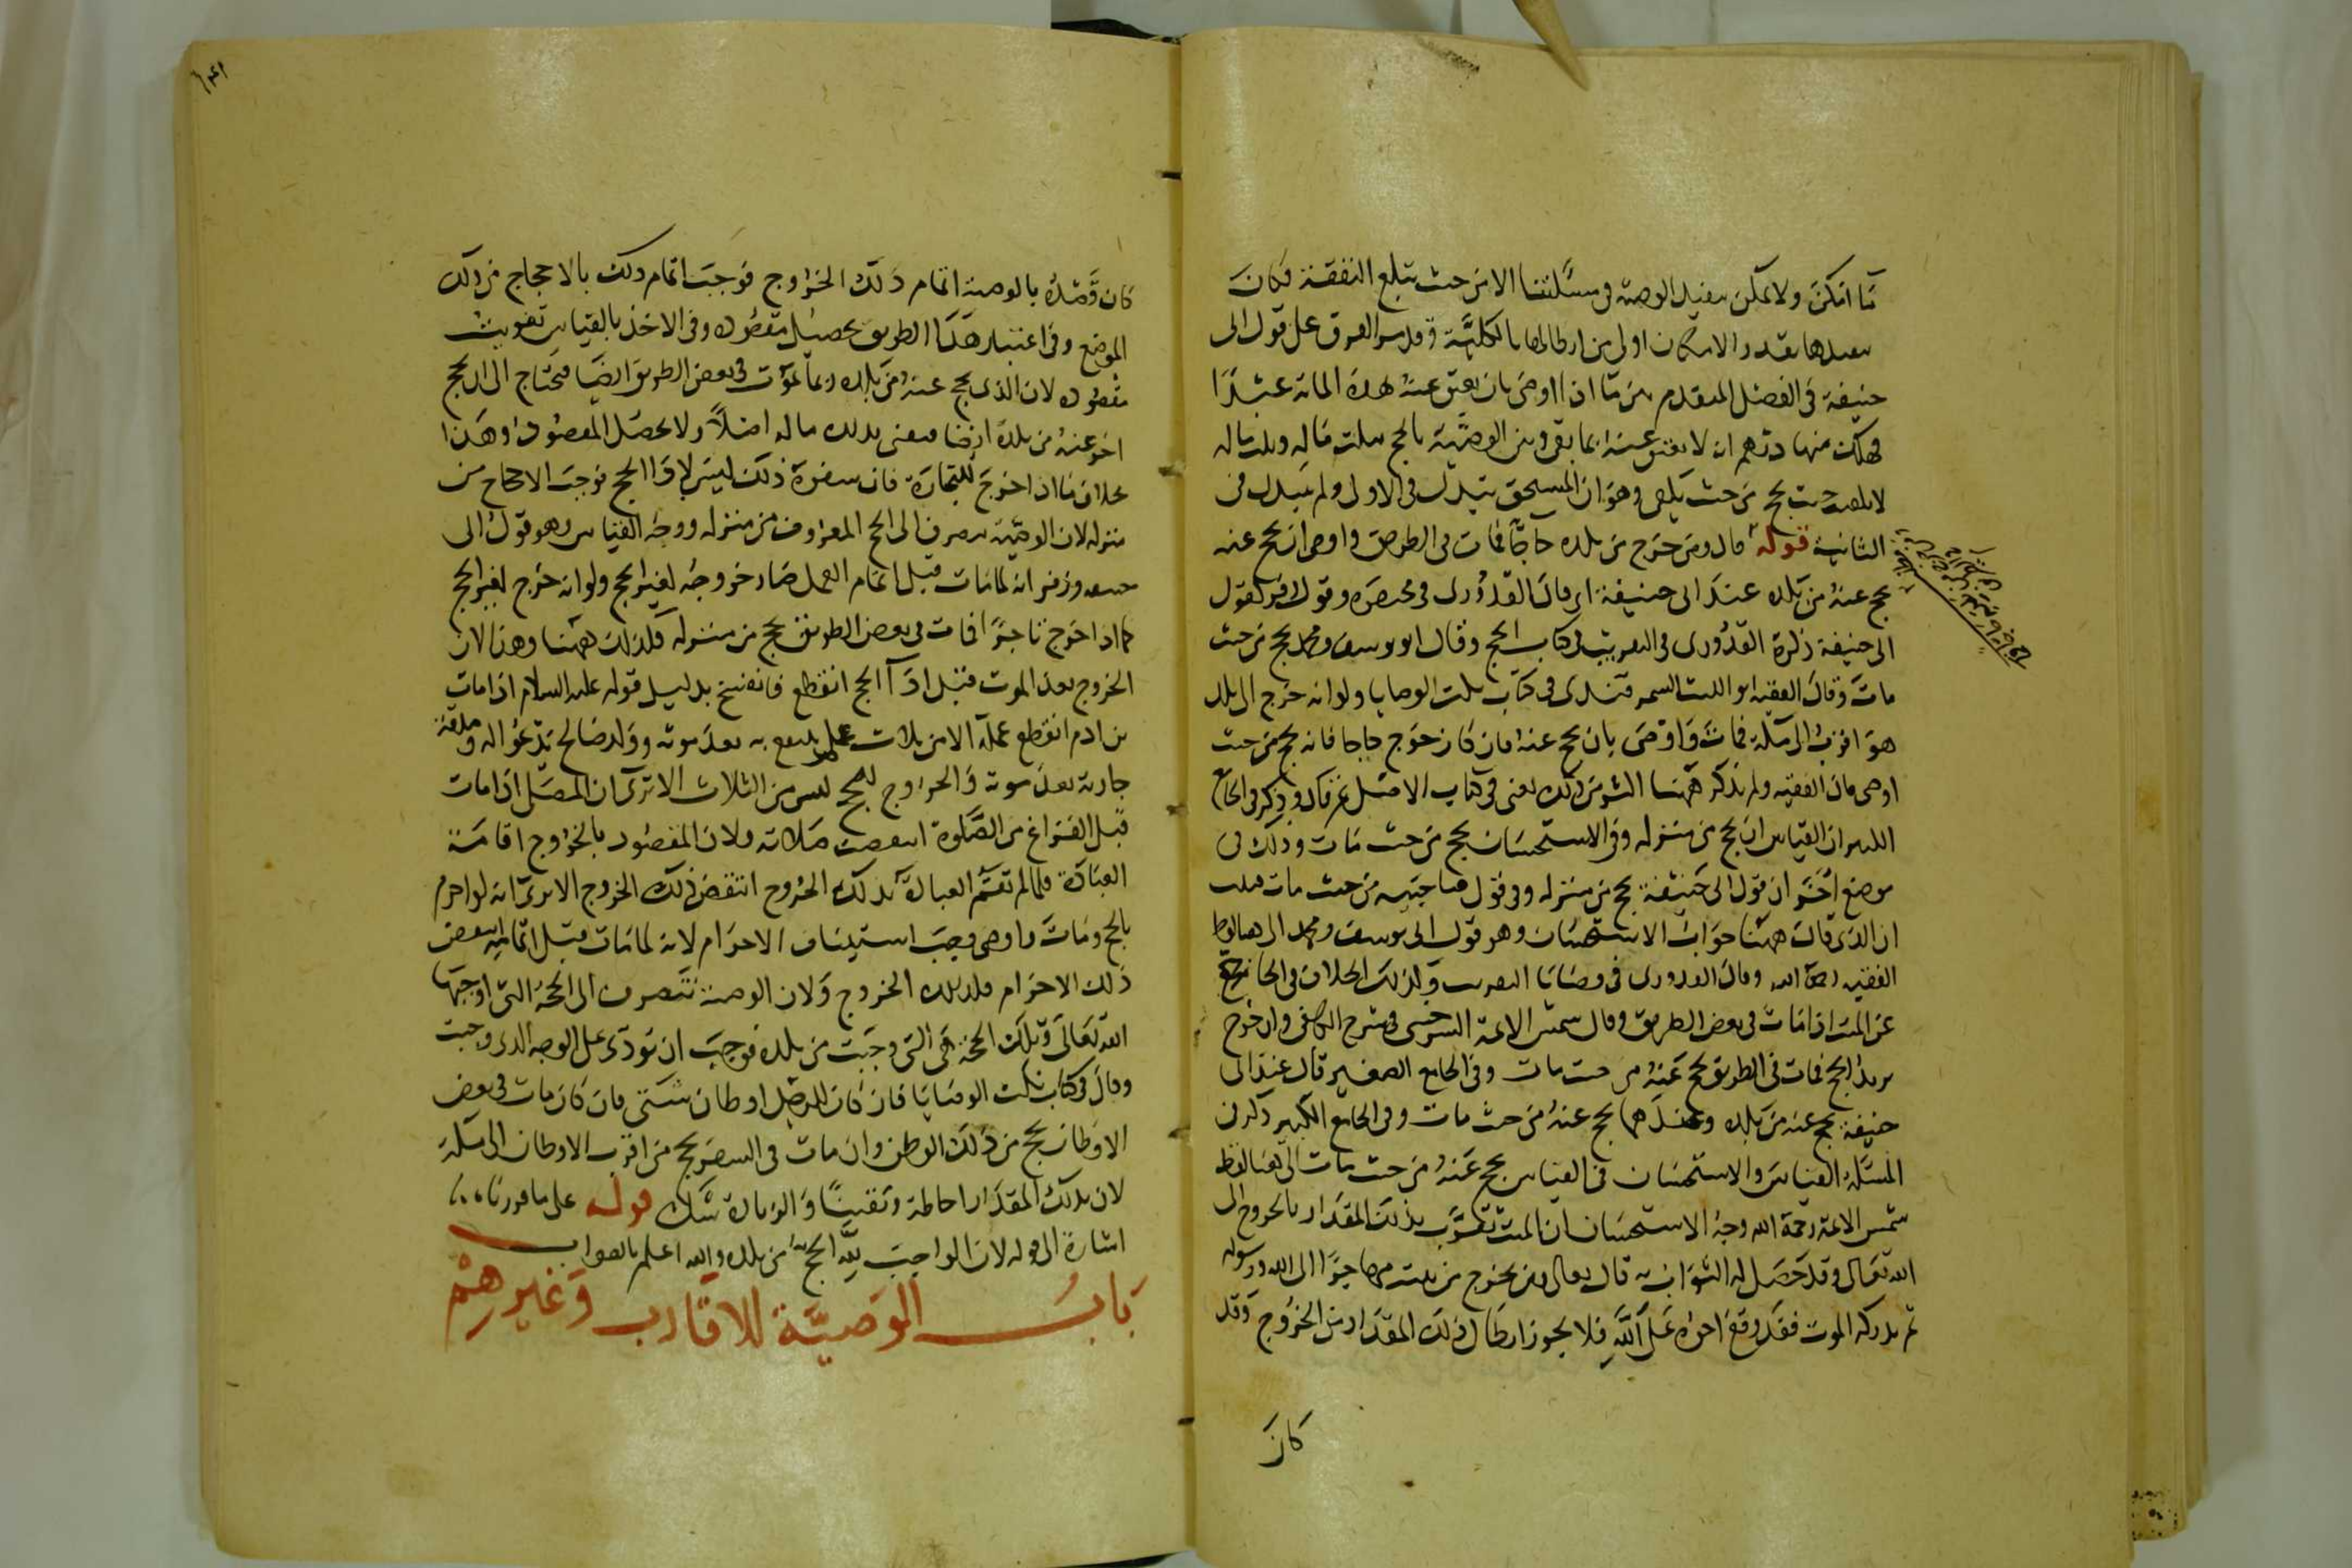 ما امكن ولا يمكن تنفيذ الوصية في مسئلتنا الا من حيث تبلغ النفقة فكان
تنفيذها بقدر الامكان اولى من ابطالها بالكلية وقد مر الفرق على قول ابى
حنيفة في الفصل المتقدم بين ما اذا اوصى بان يعتق عنه بهذه المائة عبدًا
فهلك منها درهم انه لا يعتق عنه بما بقى وبين الوصية بالحج بثلث ماله وثلث ماله
لا يبلغ حيث يحج من حيث يبلغ وهو ان المستحق تبدل في الاولى ولم يتبدل فى
الثانية قوله قال ومن خرج من بلده حاجًا فمات في الطريق واوصى ان يحج عنه
يحج عنه من بلده عند ابى حنيفة اى قال القدورى في مختصره وقول زفر كقول
ابى حنيفة ذكره القدورى في التقريب في كتاب الحج وقال ابو يوسف ومحمد يحج من حيث
مات وقال الفقيه ابو الليث السمرقندى فى كتاب نكت الوصايا ولو انه خرج الى بلد
هو اقرب الى مكة فمات واوصى بان يحج عنه فان كان خرج حاجا فانه يحج من حيث
اوصى قال الفقيه ولم يذكر ههنا اكثر من ذلك يعنى في كتاب الاصل ثم قال وذكر في الجامع
الكبير ان القياس ان يحج من منزله وفى الاستحسان يحج من حيث مات وذكر فى
موضع آخر ان قول ابى حنيفة يحج من منزله وفي قول صاحبيه من حيث مات فثبت
ان الذى قال ههنا جواب الاستحسان وهو قول ابى يوسف ومحمد الى هنا لفظ
الفقيه رحمه الله وقال القدورى في وصايا التقريب وكذلك الخلاف في الحاج
عن الميت اذا مات في بعض الطريق وقال شمس الائمة السرخسى في شرح الكافى وان خرج
يريد الحج فمات في الطريق يحج عنه من حيث مات وفي الجامع الصغير قال عند ابى
حنيفة يحج عنه من بلده وعندهما يحج عنه من حيث مات وفى الجامع الكبير ذكر فى
المسئلة القياس والاستحسان فى القياس يحج عنه من حيث مات الى هنا لفظ
شمس الائمة رحمة الله وجه الاستحسان ان الميت تقرب بذلك المقدار بالخروج الى
الله تعالى وقد حصل له الثواب به قال تعالى ومن يخرج من بيته مهاجرًا الى الله ورسوله
ثم يدركه الموت فقد وقع اجره على الله فلا يجوز ابطال ذلك المقدار من الخروج وقد
كان
كان قصده بالوصية اتمام ذلك الخروج فوجب اتمام ذلك بالاحجاج من ذلك
الموضع وفى اعتبار هذا الطريق تحصيل مقصوده وفى الاخذ بالقياس تفويت
مقصوده لان الذى يحج عنه من بلده ربما يموت في بعض الطريق ايضا فيحتاج الى ان يحج
آخر عنه من بلده ايضا فيفنى بذلك ماله اصلاً ولا يحصل المقصود وهذا
بخلاف ما اذا خرج للتجارة فان سفره ذلك ليس لاداء الحج فوجب الاحجاج من
منزله لان الوصية تنصرف الى الحج المعروف من منزله ووجه القياس وهو قول ابى
حنيفة وزفر انه لما مات قبل اتمام العمل صار خروجه لغير الحج ولو انه خرج لغير الحج
كما اذا خرج تاجرًا فمات في بعض الطريق يحج من منزله فكذلك ههنا وهذا لان
الخروج بعد الموت قبل اداء الحج انقطع فانفسخ بدليل قوله عليه السلام اذا مات
بن ادم انقطع عمله الا من ثلاث علم ينتفع به بعد موته وولد صالح يدعو له وصدقة
جارية بعد موته والخروج للحج ليس من الثلاث الا ترى ان المصلى اذا مات
قبل الفراغ من الصلوة انتقضت صلاته ولان المقصود بالخروج اقامة
العبادة فلما لم تقم العبادة بذلك الخروج انتقض ذلك الخروج الا ترى انه لو احرم
بالحج ومات واوصى وجب استيناف الاحرام لانه لما مات قبل اتمامه انتقض
ذلك الاحرام فكذلك الخروج ولان الوصية تنصرف الى الحجة التى اوجبها
الله تعالى وتلك الحجة هى التى وجبت من بلده فوجب ان تودى على الوجه الذى وجبت
وقال في كتاب نكت الوصايا فان كان للرجل اوطان شتى فان كان مات في بعض
الاوطان يحج من ذلك الوطن وان مات فى السفر يحج من اقرب الاوطان الى مكة
لان بذلك المقدار احاطة وتقينًا والزيادة شك قوله على ما قررنا
اشارة الى قوله لان الواجب لله الحج من بلده والله اعلم بالصواب
باب الوصية للاقارب وغيرهم